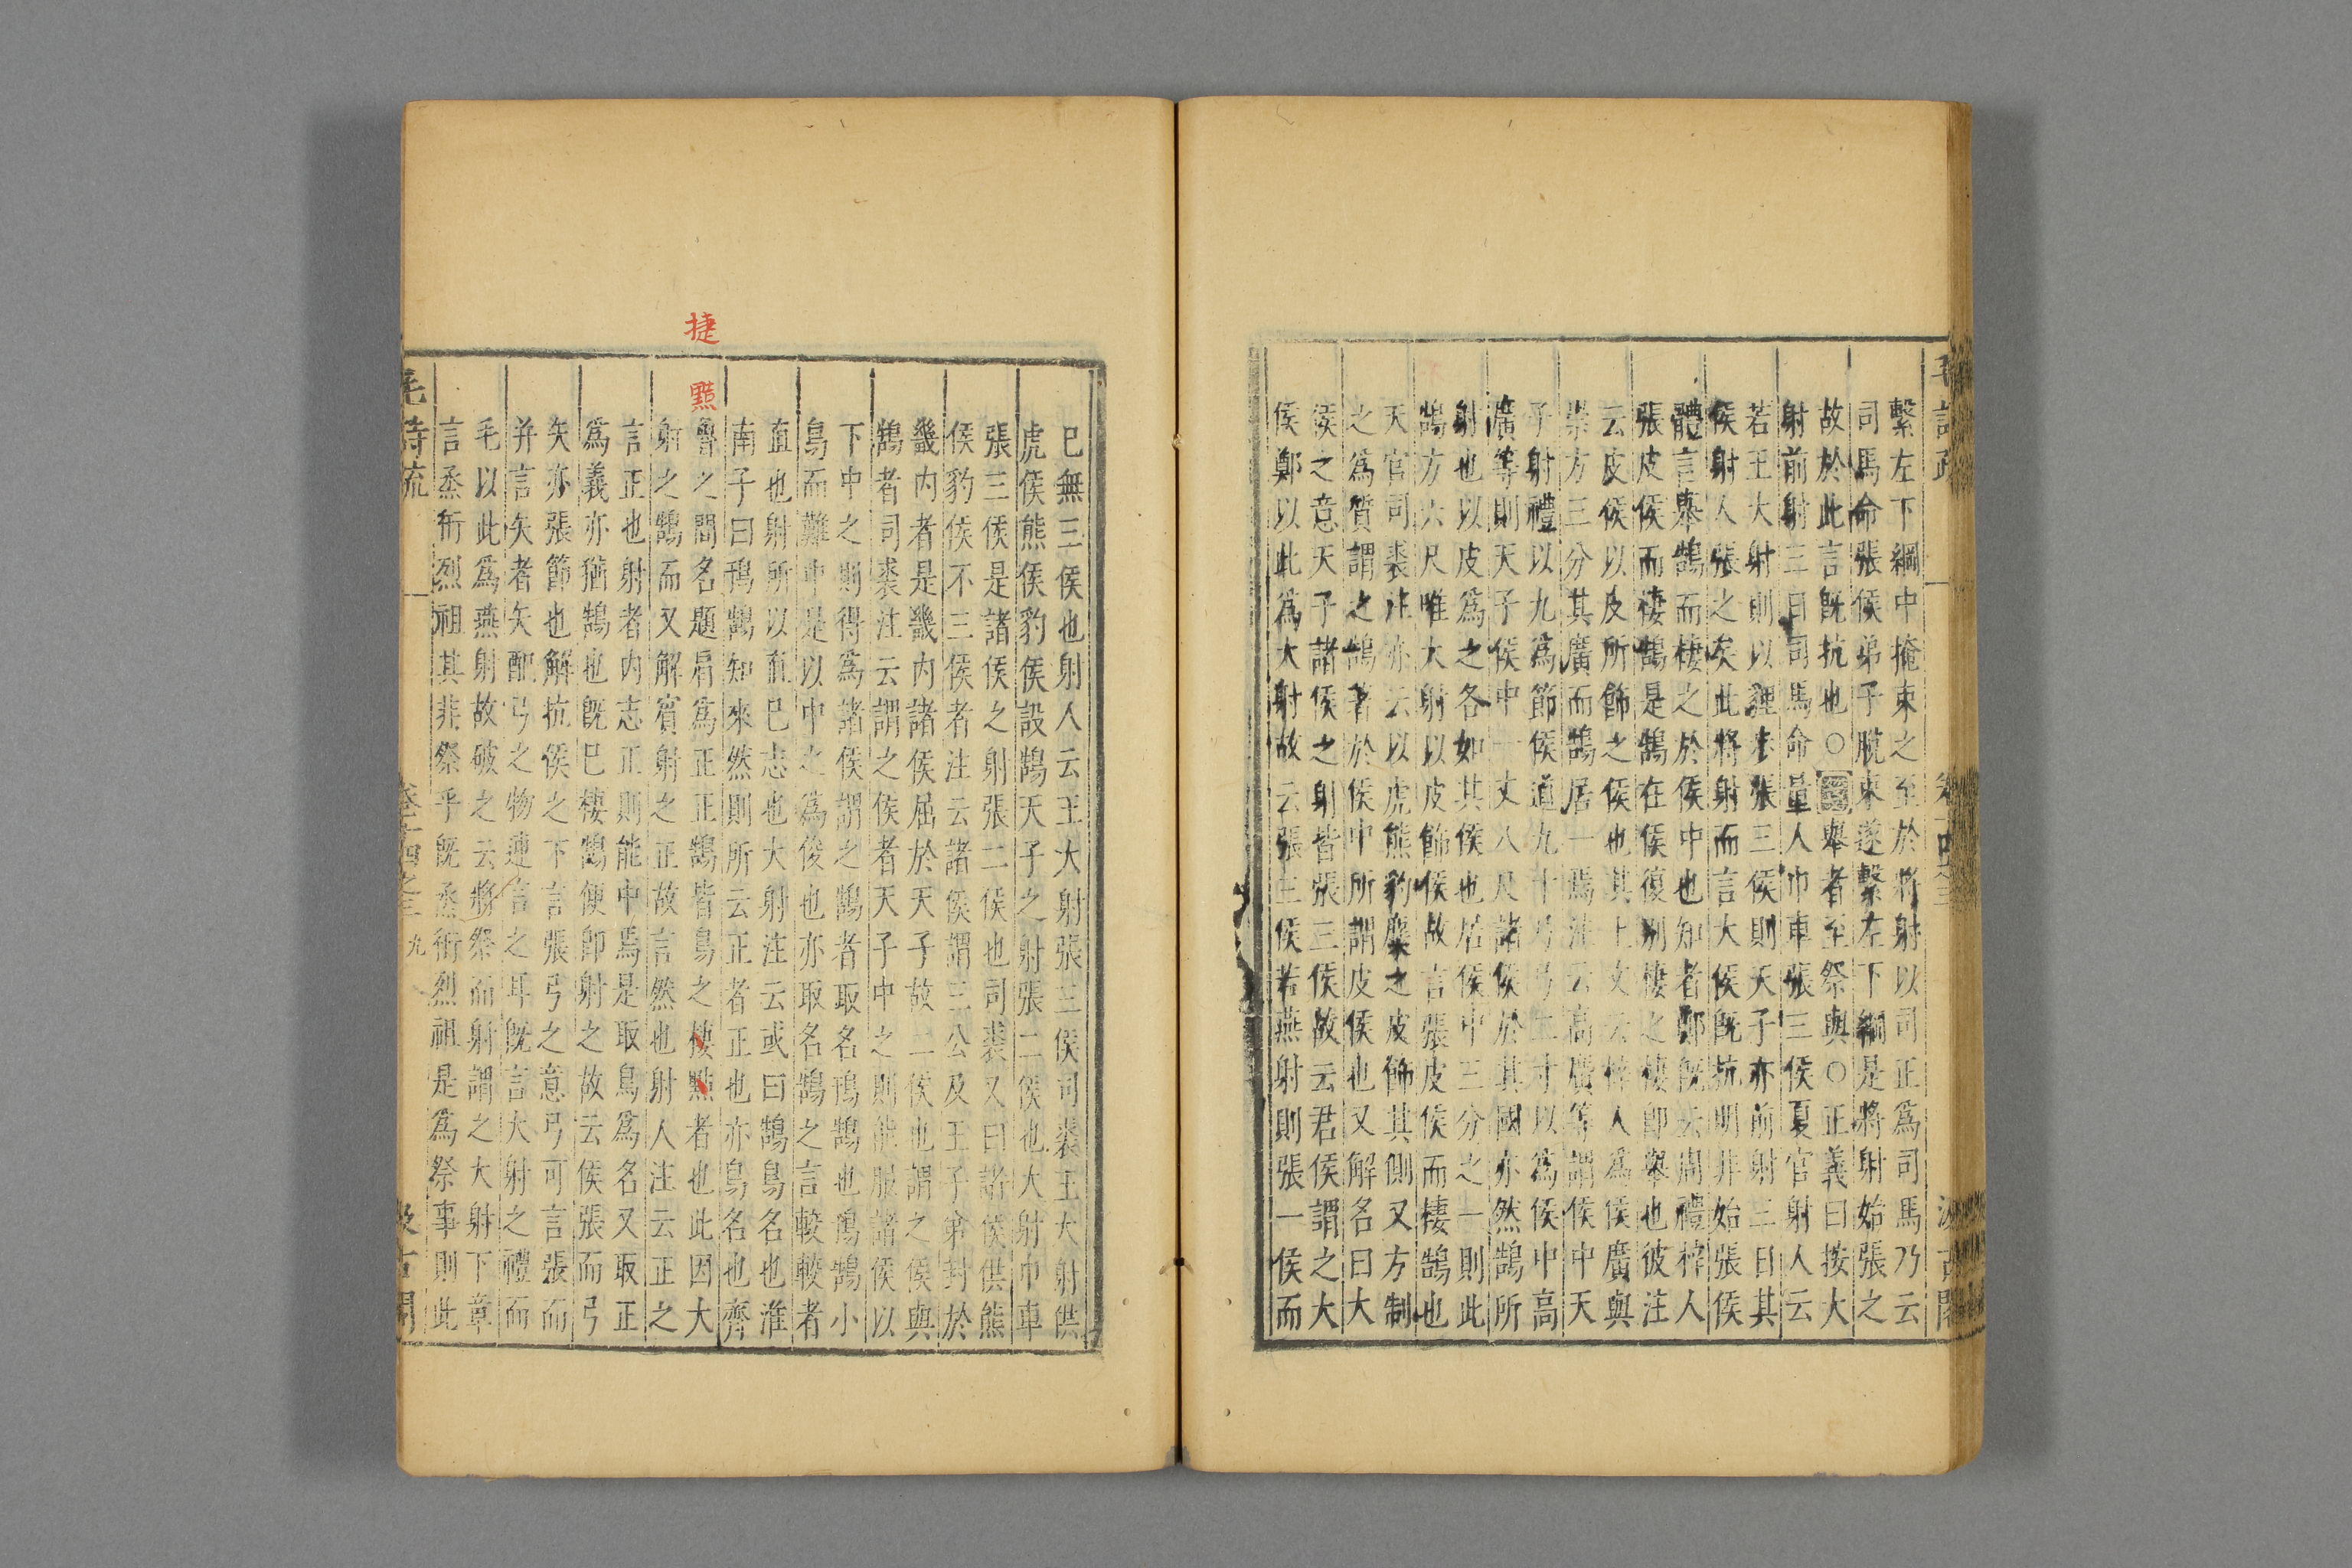 繫左下綱中掩束之至於將射以司正爲司馬乃云
司馬命張侯弟子脫束遂繫左下綱是將射始張之
故於此言旣抗也○舉者至祭與○正義曰按大
射前射三日司馬命量人巾車張三侯夏官射人云
若王大射則以貍步張三侯則天子亦前射三日其
侯射人張之矣此將射而言大侯旣抗明非始張侯
體言舉鵠而棲之於侯中也知者鄭旣云周禮梓人
張皮侯而棲鵠是鵠在侯復別棲之棲卽舉也彼注
云皮侯以皮所飾之侯也其上文云梓人爲侯廣與
崇方三分其廣而鵠居一焉注云高廣等謂侯中天
子射禮以九爲節侯道九十弓弓二寸以爲侯中高
廣等則天子侯中一丈八尺諸侯於其國亦然鵠所
射也以皮爲之各如其侯也居侯中三分之一則此
鵠方六尺唯大射以皮飾侯故言張皮侯而棲鵠也
天官司裘注亦云以虎熊豹麋之皮飾其側又方制
之爲質謂之鵠著於侯中所謂皮侯也又解名曰大
侯之意天子諸侯之射皆張三侯故云君侯謂之大
侯鄭以此爲大射故云張三侯若燕射則張一侯而
毛詩疏
卷十四之三
汲古閣
已無三侯也射人云王大射張三侯司裘王大射供
虎侯熊侯豹侯設鵠天子之射張二侯也大射巾車
張三侯是諸侯之射張二侯也司裘又曰諸侯供熊
侯豹侯不三侯者注云諸侯謂三公及王子弟封於
畿內者是畿內諸侯屈於天子故二侯也謂之侯與
鵠者司裘注云謂之侯者天子中之則能服諸侯以
下中之則得爲諸侯謂之鵠者取名鳱鵠也鳱鵠小
鳥而難中是以中之爲俊也亦取名鵠之言較較者
直也射所以直已志也大射注云或曰鵠鳥名也淮
南子曰鳱鵠知來然則所云正者正也亦鳥名也齊
魯之間名題肩爲正正鵠皆鳥之棲點者也此因大
射之鵠而又解賓射之正故言然也射人注云正之
言正也射者內志正則能中焉是取鳥爲名又取正
爲義亦猶鵠也旣已棲鵠便卽射之故云侯張而弓
矢亦張節也解抗侯之下言張弓之意弓可言張而
并言矢者矢配弓之物連言之耳旣言大射之禮而
毛以此爲燕射故破之云將祭而射謂之大射下章
言烝衎烈祖其非祭乎旣烝衎烈祖是爲祭事則此
毛詩疏
卷十四之三
九
汲古閣
捷
黠